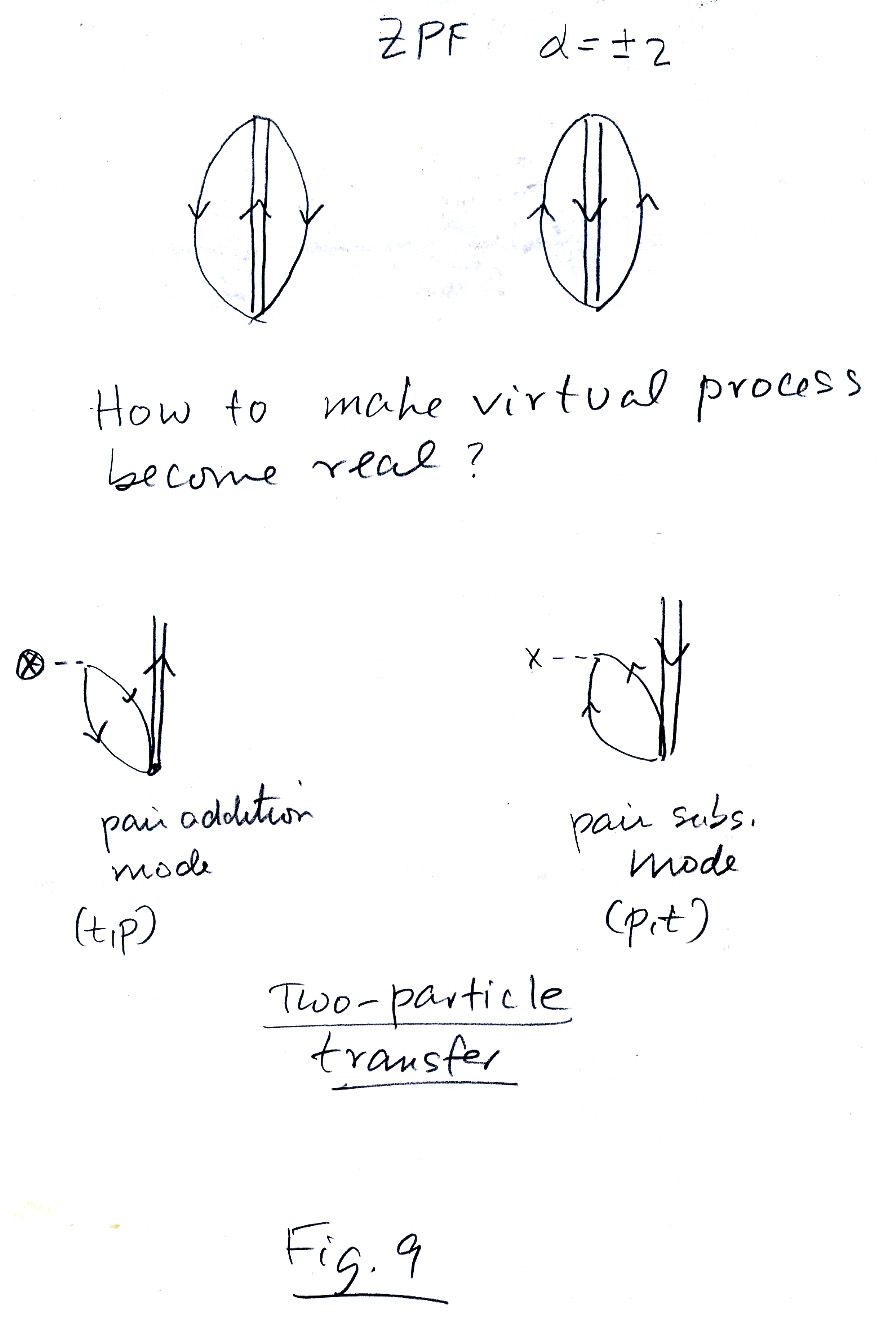 ZPF α = ±2
How to make virtual process
become real ?
X
X
pair addition
mode
(t,p)
pair subs.
mode
(p,t)
Two-particle
transfer
Fig. 9